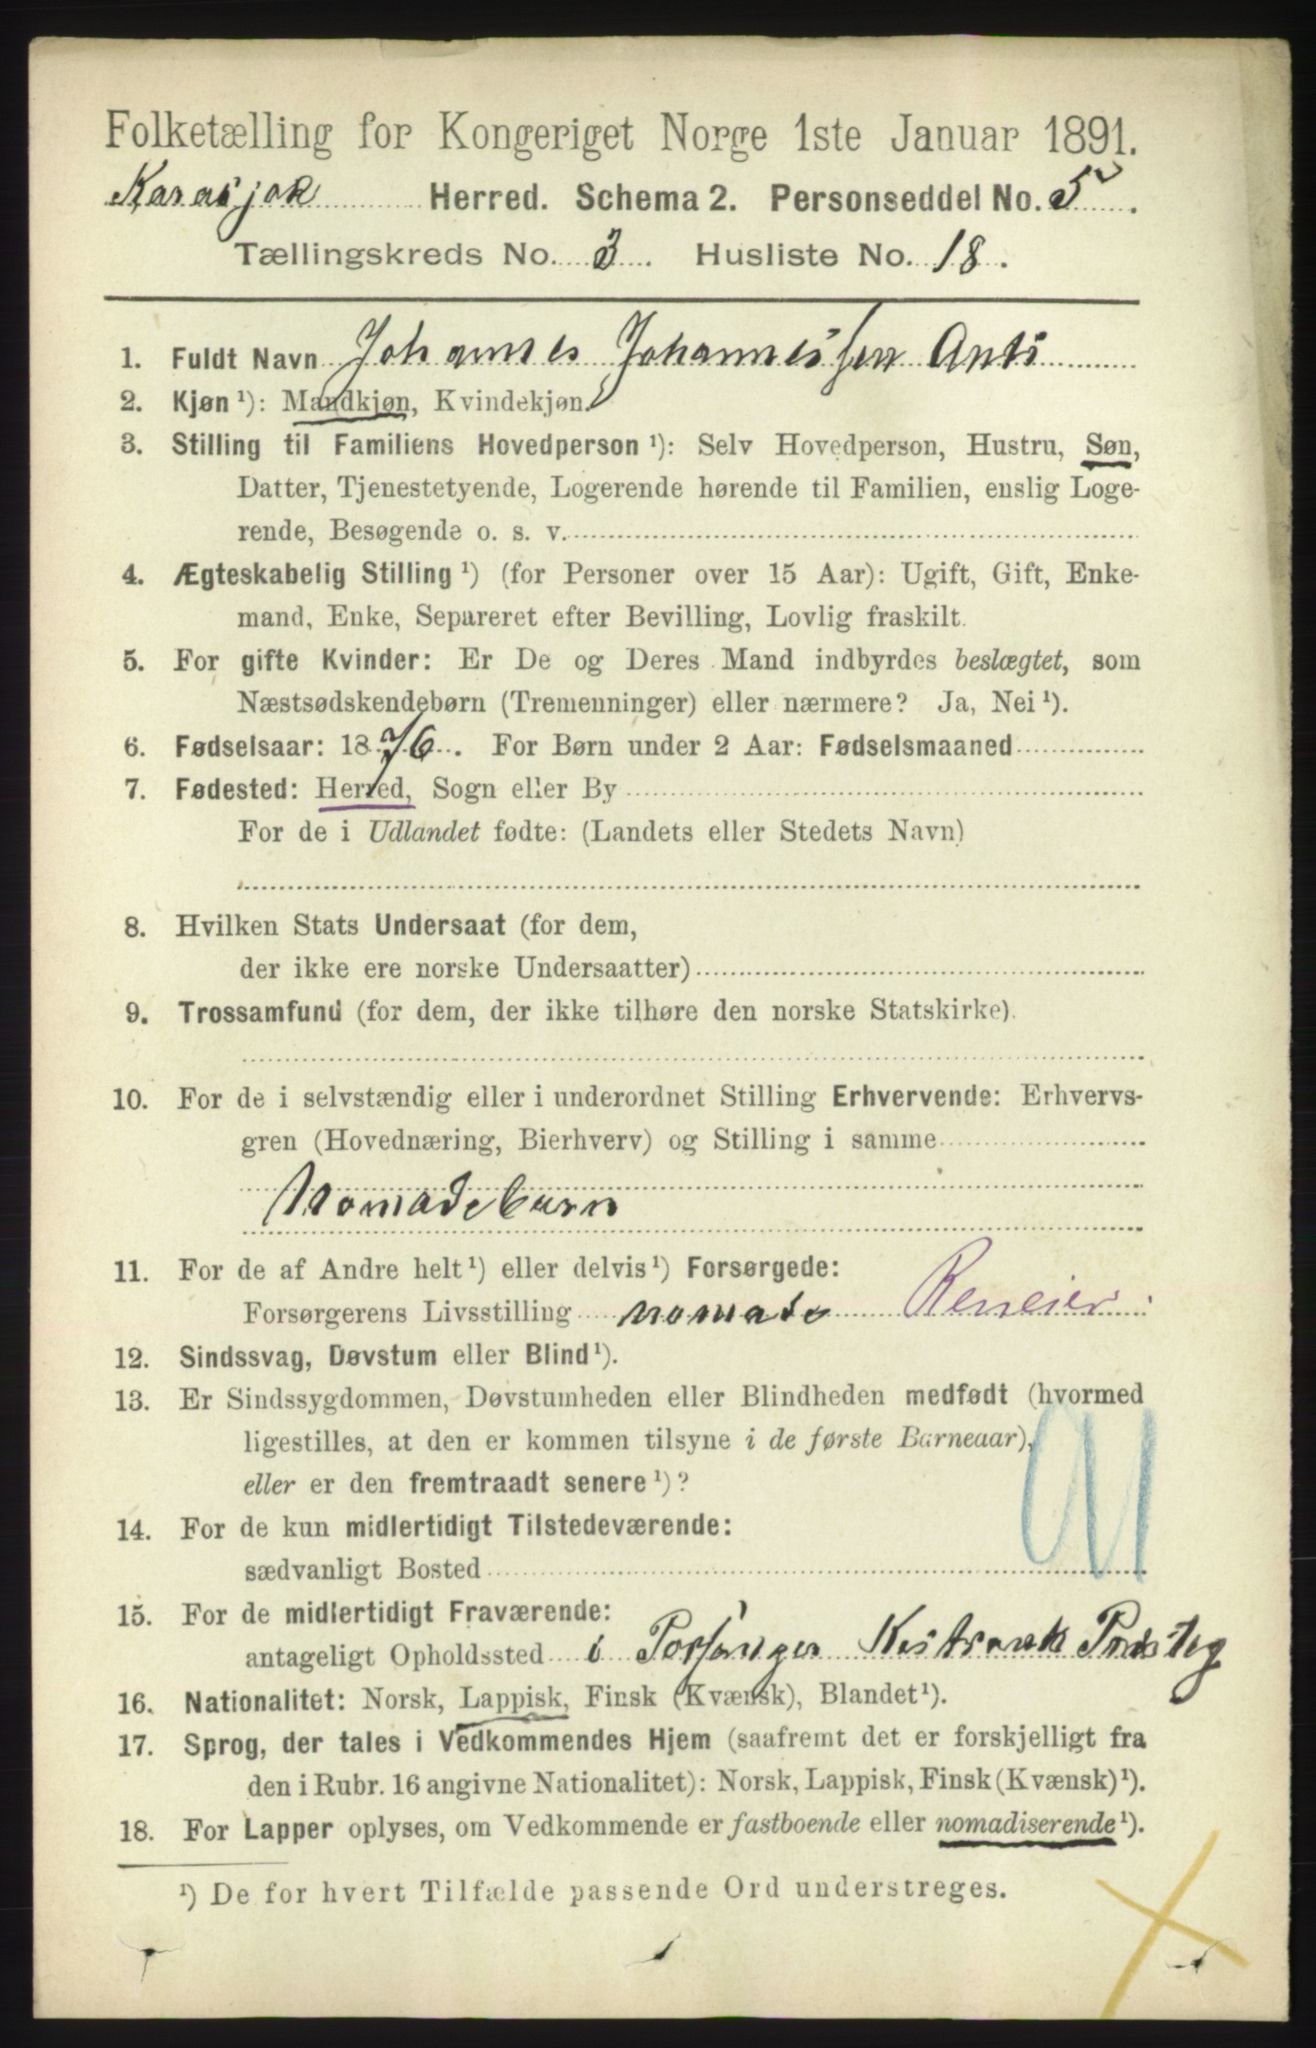 Folketælling for Kongeriget Norge 1ste Januar 1891.
Karasjok Herred. Schema 2. Personseddel No. 5.
Tællingskreds No. 3. Husliste No. 18.
1. Fuldt Navn Johannes Johannessen Anti
2. Kjøn ¹): Mandkjøn, Kvindekjøn.
3. Stilling til Familiens Hovedperson ¹): Selv Hovedperson, Hustru, Søn,
Datter, Tjenestetyende, Logerende hørende til Familien, enslig Loge-
rende, Besøgende o. s. v.
4. Ægteskabelig Stilling ¹) (for Personer over 15 Aar): Ugift, Gift, Enke-
mand, Enke, Separeret efter Bevilling, Lovlig fraskilt.
5. For gifte Kvinder: Er De og Deres Mand indbyrdes beslægtet, som
Næstsødskendebørn (Tremenninger) eller nærmere? Ja, Nei ¹).
6. Fødselsaar: 1876. For Børn under 2 Aar: Fødselsmaaned
7. Fødested: Herred, Sogn eller By
For de i Udlandet fødte: (Landets eller Stedets Navn)
8. Hvilken Stats Undersaat (for dem,
der ikke ere norske Undersaatter)
9. Trossamfund (for dem, der ikke tilhøre den norske Statskirke).
10. For de i selvstændig eller i underordnet Stilling Erhvervende: Erhvervs-
gren (Hovednæring, Bierhverv) og Stilling i samme
Nomadebarn
11. For de af Andre helt ¹) eller delvis ¹) Forsørgede:
Forsørgerens Livsstilling nomade Reneier
12. Sindssvag, Døvstum eller Blind ¹).
13. Er Sindssygdommen, Døvstumheden eller Blindheden medfødt (hvormed
ligestilles, at den er kommen tilsyne i de første Barneaar),
eller er den fremtraadt senere ¹)?
14. For de kun midlertidigt Tilstedeværende:
sædvanligt Bosted
15. For de midlertidigt Fraværende:
antageligt Opholdssted i Porsanger Kistrand
16. Nationalitet: Norsk, Lappisk, Finsk (Kvænsk), Blandet ¹).
17. Sprog, der tales i Vedkommendes Hjem (saafremt det er forskjelligt fra
den i Rubr. 16 angivne Nationalitet): Norsk, Lappisk, Finsk (Kvænsk) ¹).
18. For Lapper oplyses, om Vedkommende er fastboende eller nomadiserende ¹).
¹) De for hvert Tilfælde passende Ord understreges.